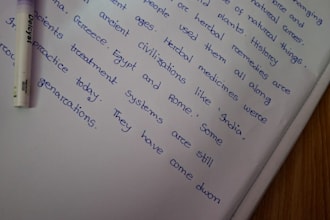 changing
are and
of natural cures.
natural things.
and plants. History
are herbal remedies are
people used them all along
ancient ages. Herbal medicines were
ancient civilizations like India,
, Greece, Egypt and Rome. Some
ancients treatment systems are still
In practice today. They have come dwon
genarcations.